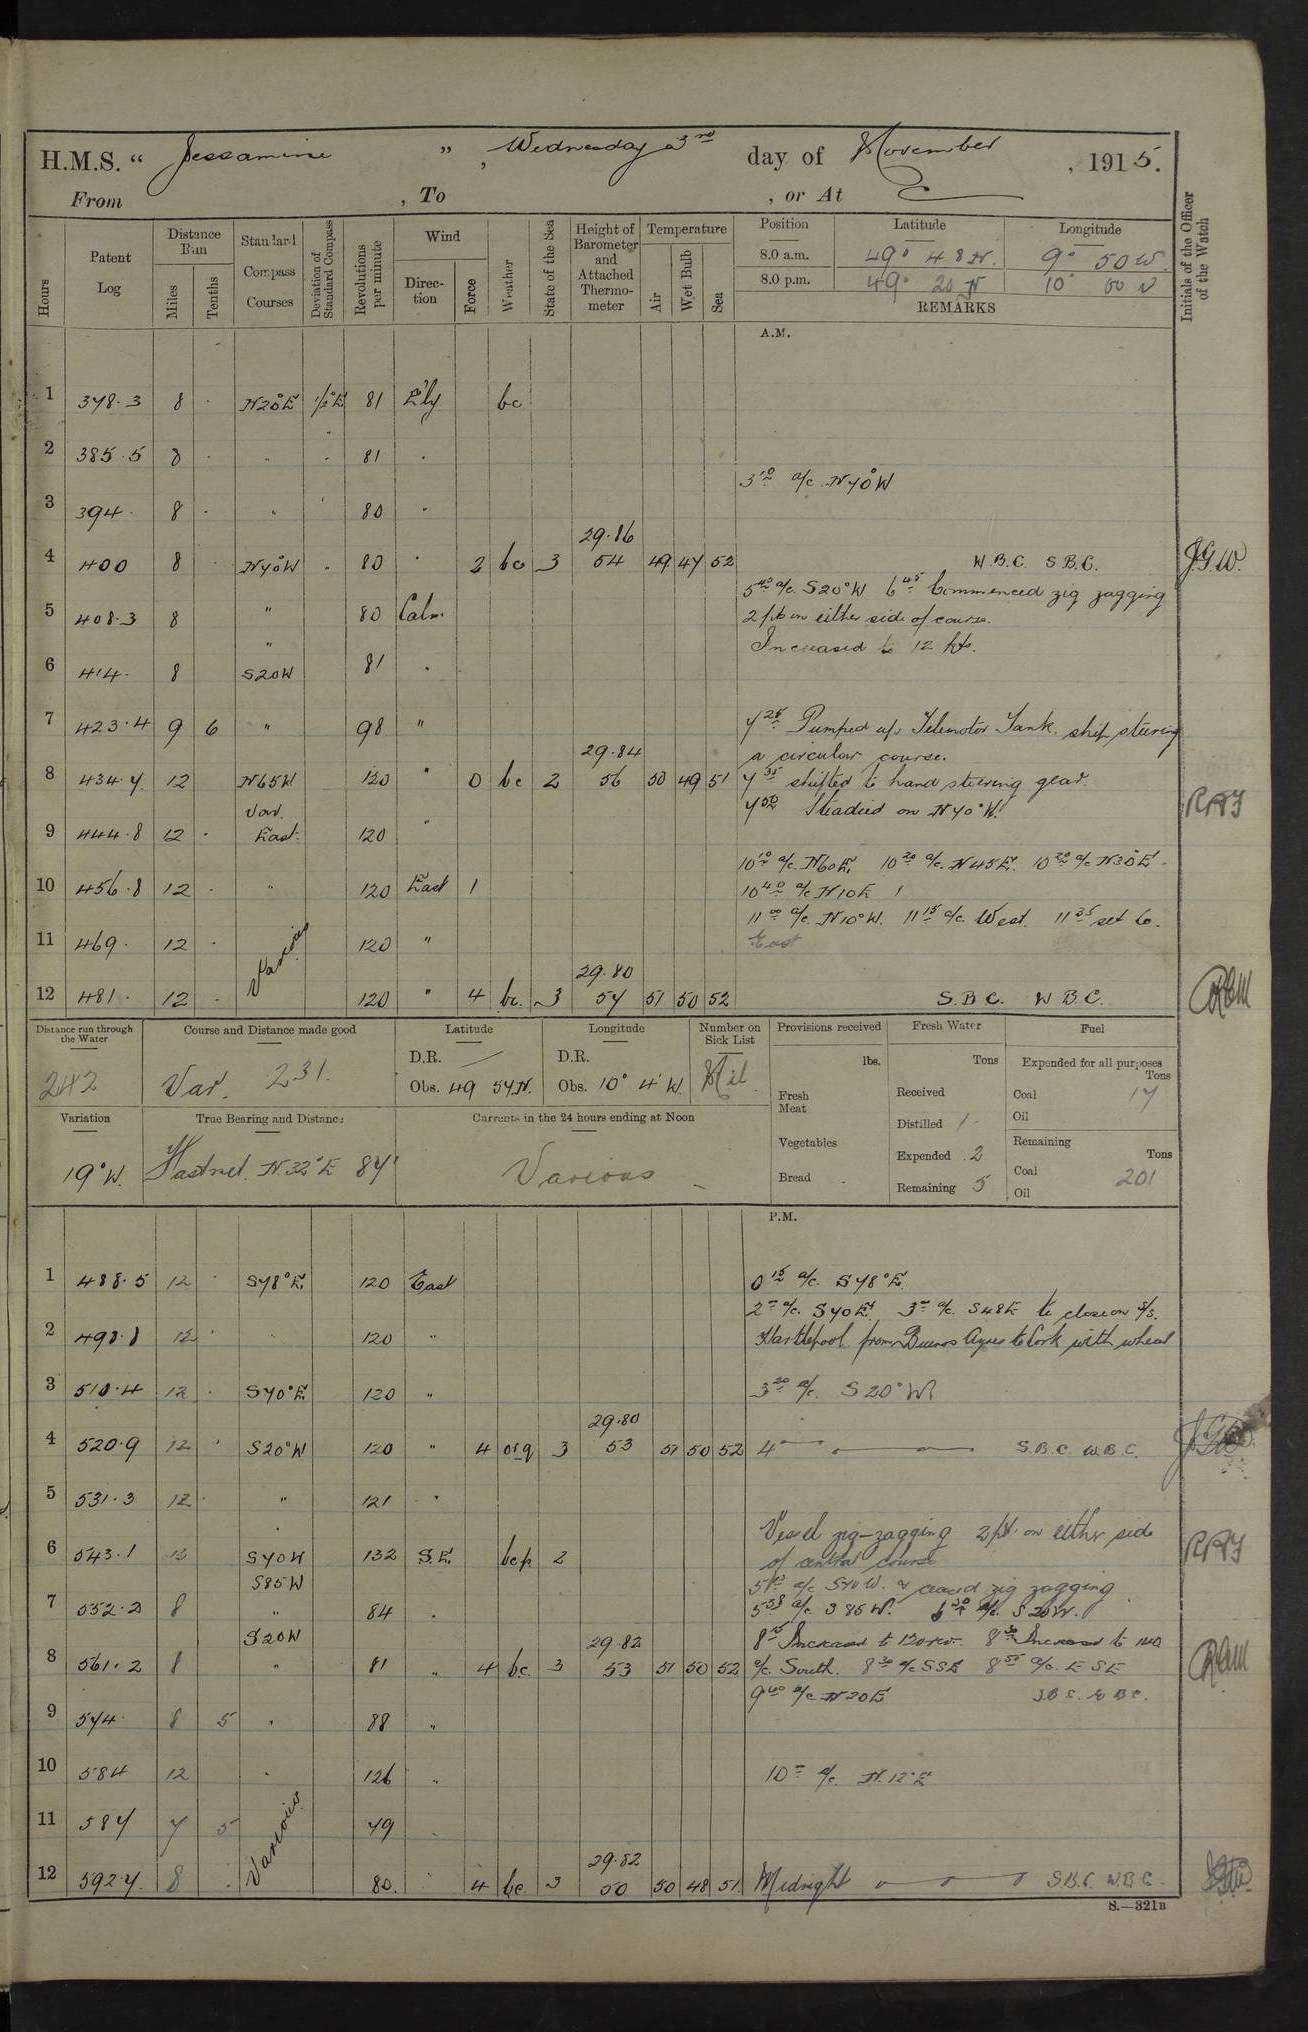 H.M.S. “ Jessamine ” , Wednesday 3rd day of November , 1915.
From , To , or At
Hours
Patent Log
Distance Run
Miles
Tenths
Standard Compass Courses
Deviation of Standard Compass
Revolutions per minute
Wind
Direction
Force
Weather
State of the Sea
Height of Barometer and Attached Thermometer
Temperature
Air
Wet Bulb
Sea
Position Latitude Longitude
8.0 a.m. 49° 48 N. 9° 50 W.
8.0 p.m. 49° 20 N 10° 00 W
REMARKS
Initials of the Officer of the Watch
A.M.
1 378.3 8 . N20°E 1/2°E 81 E'ly bc
2 385.5 8 . " . 81 .
3 10 a/c N70°W
3 394. 8 . " 80 "
29.86
4 400 8 N70°W . 80 . 2 bc 3 54 49 47 52 W.B.C. S.B.C. J.G.W.
5 40 a/c. S20°W 6 45 Commenced zig zagging
5 408.3 8 " 80 Calm 2 pts on either side of course.
" Increased to 12 kts.
6 414. 8 S20W 81 .
7 423.4 9 6 " 98 " 7 25 Pumped up Telemotor Tank, ship steering
29.84 a circular course.
8 434.7 12 N65W 120 " 0 bc 2 56 50 49 51 7 35 shifted to hand steering gear.
Var. 7 50 Steadied on N70°W.
9 444.8 12 . East. 120 "
10 10 a/c. N60E, 10 20 a/c. N45E. 10 30 a/c N30E.
10 456.8 12 . " 120 East 1 10 40 a/c N10E
11 00 a/c. N10°W. 11 15 a/c. West. 11 35 set Co.
11 469. 12 . Various 120 " East
29.80
12 481. 12 . 120 " 4 bc. 3 57 51 50 52 S.B.C. W.B.C.
Distance run through the Water
242
Course and Distance made good
Var. 231.
Latitude
D.R.
Obs. 49 57 N.
Longitude
D.R.
Obs. 10° 4' W.
Number on Sick List
Nil
Provisions received
lbs.
Fresh Meat
Vegetables
Bread
Fresh Water
Tons
Received
Distilled 1
Expended 2
Remaining 5
Fuel
Expended for all purposes
Tons
Coal 17
Oil
Remaining
Tons
Coal 201
Oil
Variation
19°W.
True Bearing and Distance
Fastnet. N.32°E 87'
Currents in the 24 hours ending at Noon
Various
P.M.
1 488.5 12 . S78°E 120 East 0 15 a/c. S78°E.
2 a/c. S70E. 3 a/c. S48E to close on S/S.
2 498.8 12 120 " Hartlepool from Buenos Ayres to Cork with wheat
3 510.4 12 . S70°E 120 " 3 20 a/c. S20°W
29.80
4 520.9 12 . S20°W 120 " 4 orq 3 53 51 50 52 4 S.B.C. W.B.C.
5 531.3 12 . " 121 "
Vessel zig-zagging 2 pts. on either side
6 543.1 S70W 132 S.E. bcp 2 of central course
S85W 5 10 a/c S70W. & ceased zig zagging.
7 552.2 8 " 84 . 5 58 a/c S85W. 6 30 a/c. S20W.
S20W 29.82 8 15 Increased to 120 rev.
8 561.2 8 " 81 " 4 bc. 3 53 51 50 52 a/c. South. 8 30 a/c SSE 8 55 a/c. ESE
9 40 a/c N20E S.B.C. W.B.C.
9 574. 8 5 " 88 "
10 584 12 . 126 " 10 a/c. N.12°E
11 587 7 5 Various 79 .
29.82
12 592.7 8 . 80. . 4 bc. 3 50 50 48 51. Midnight S.B.C. W.B.C.
S.—321B